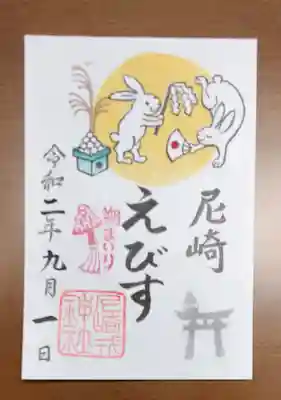 尼崎
えびす
御まいり
令和二年九月一日
尼崎戎
神社